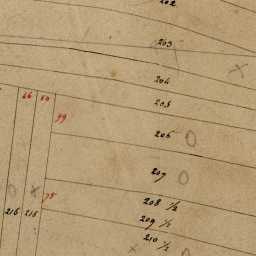 202
203
204
205
66 64
99
206
207
75
208 1/2
216 215
209 1/2
210 1/2